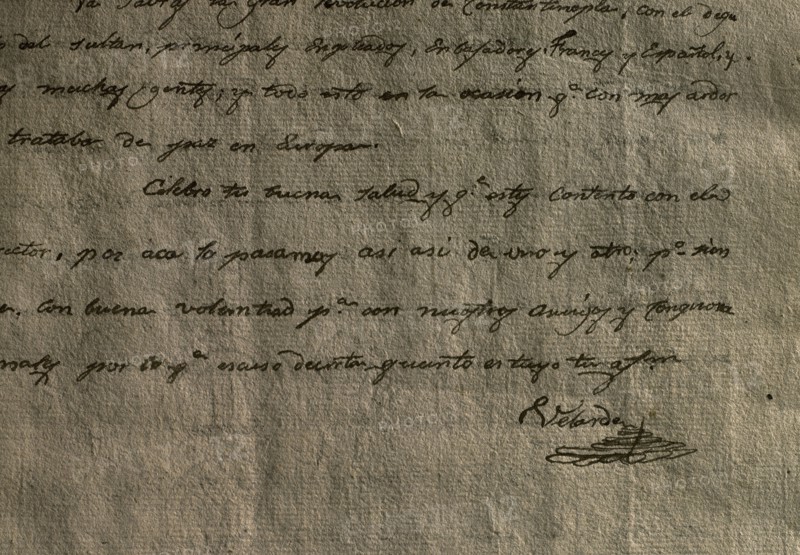 Ya sabras la gran revolucion de Constantinopla, con el degu
del sultan, principales Empleados, Embajadores Frances y Español, y
muchas gentes; y todo esto en la ocasion q.e con mas ardor
trataban de paz en Europa.
Celebro tu buena salud y q.e estes contento con el
rector, por aca lo pasamos asi asi de uno y otro; p.o siem
con buena voluntad p.a con nuestros amigos y
por lo q.e escuso decirte quanto es tuyo tu af.mo
Velarde